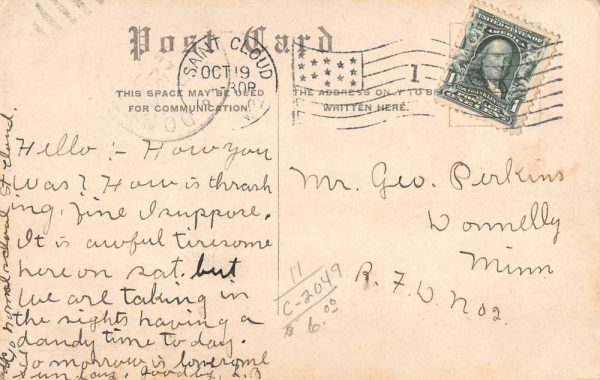 Post Card
SAINT CLOUD
OCT 19
THIS SPACE MAY BE USED
FOR COMMUNICATION.
THE ADDRESS ONLY TO BE
WRITTEN HERE.
1
1
1
Hello :- How you
was? How is thrash
ing. Fine I suppose.
It is awful tiresome
here on sat. but
we are taking in
the sights having a
dandy time to day.
Tomorrow is lonesome
Sunday. Goodby, L.B
normal school St Cloud.
Mr. Geo. Perkins
Donnelly
Minn
R. F. D. No 2.
11
C-2049
$ 6.00